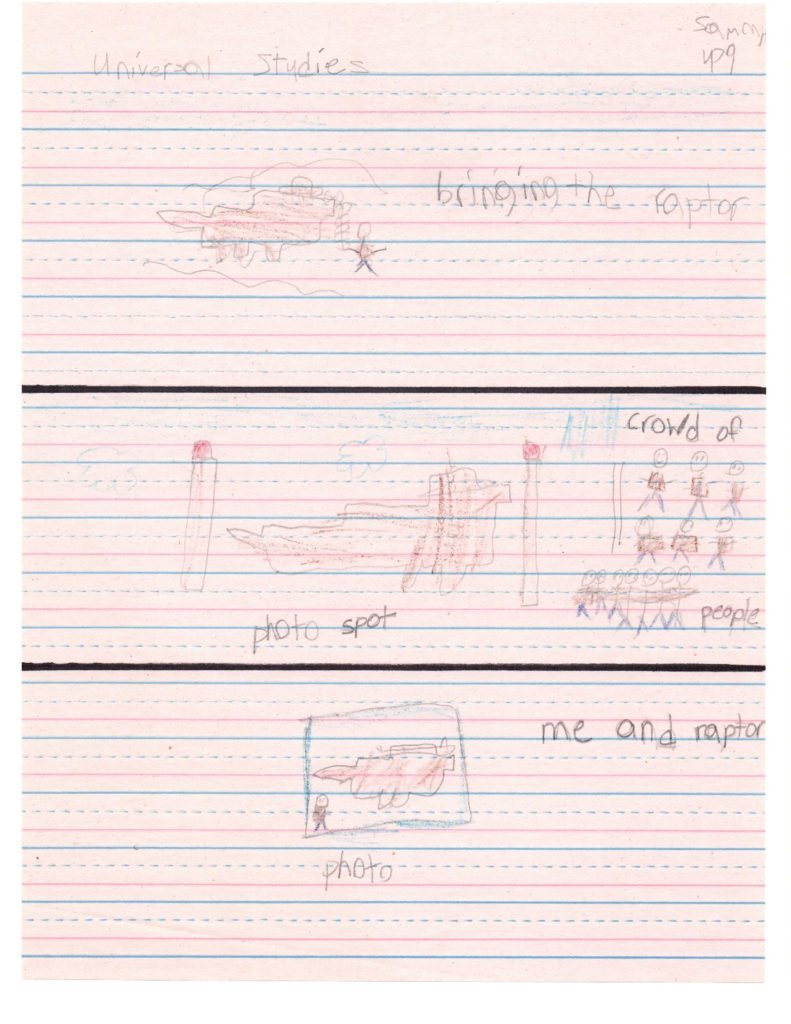 Universal Studies
bringing the raptor
crowd of
people
photo spot
me and raptor
photo